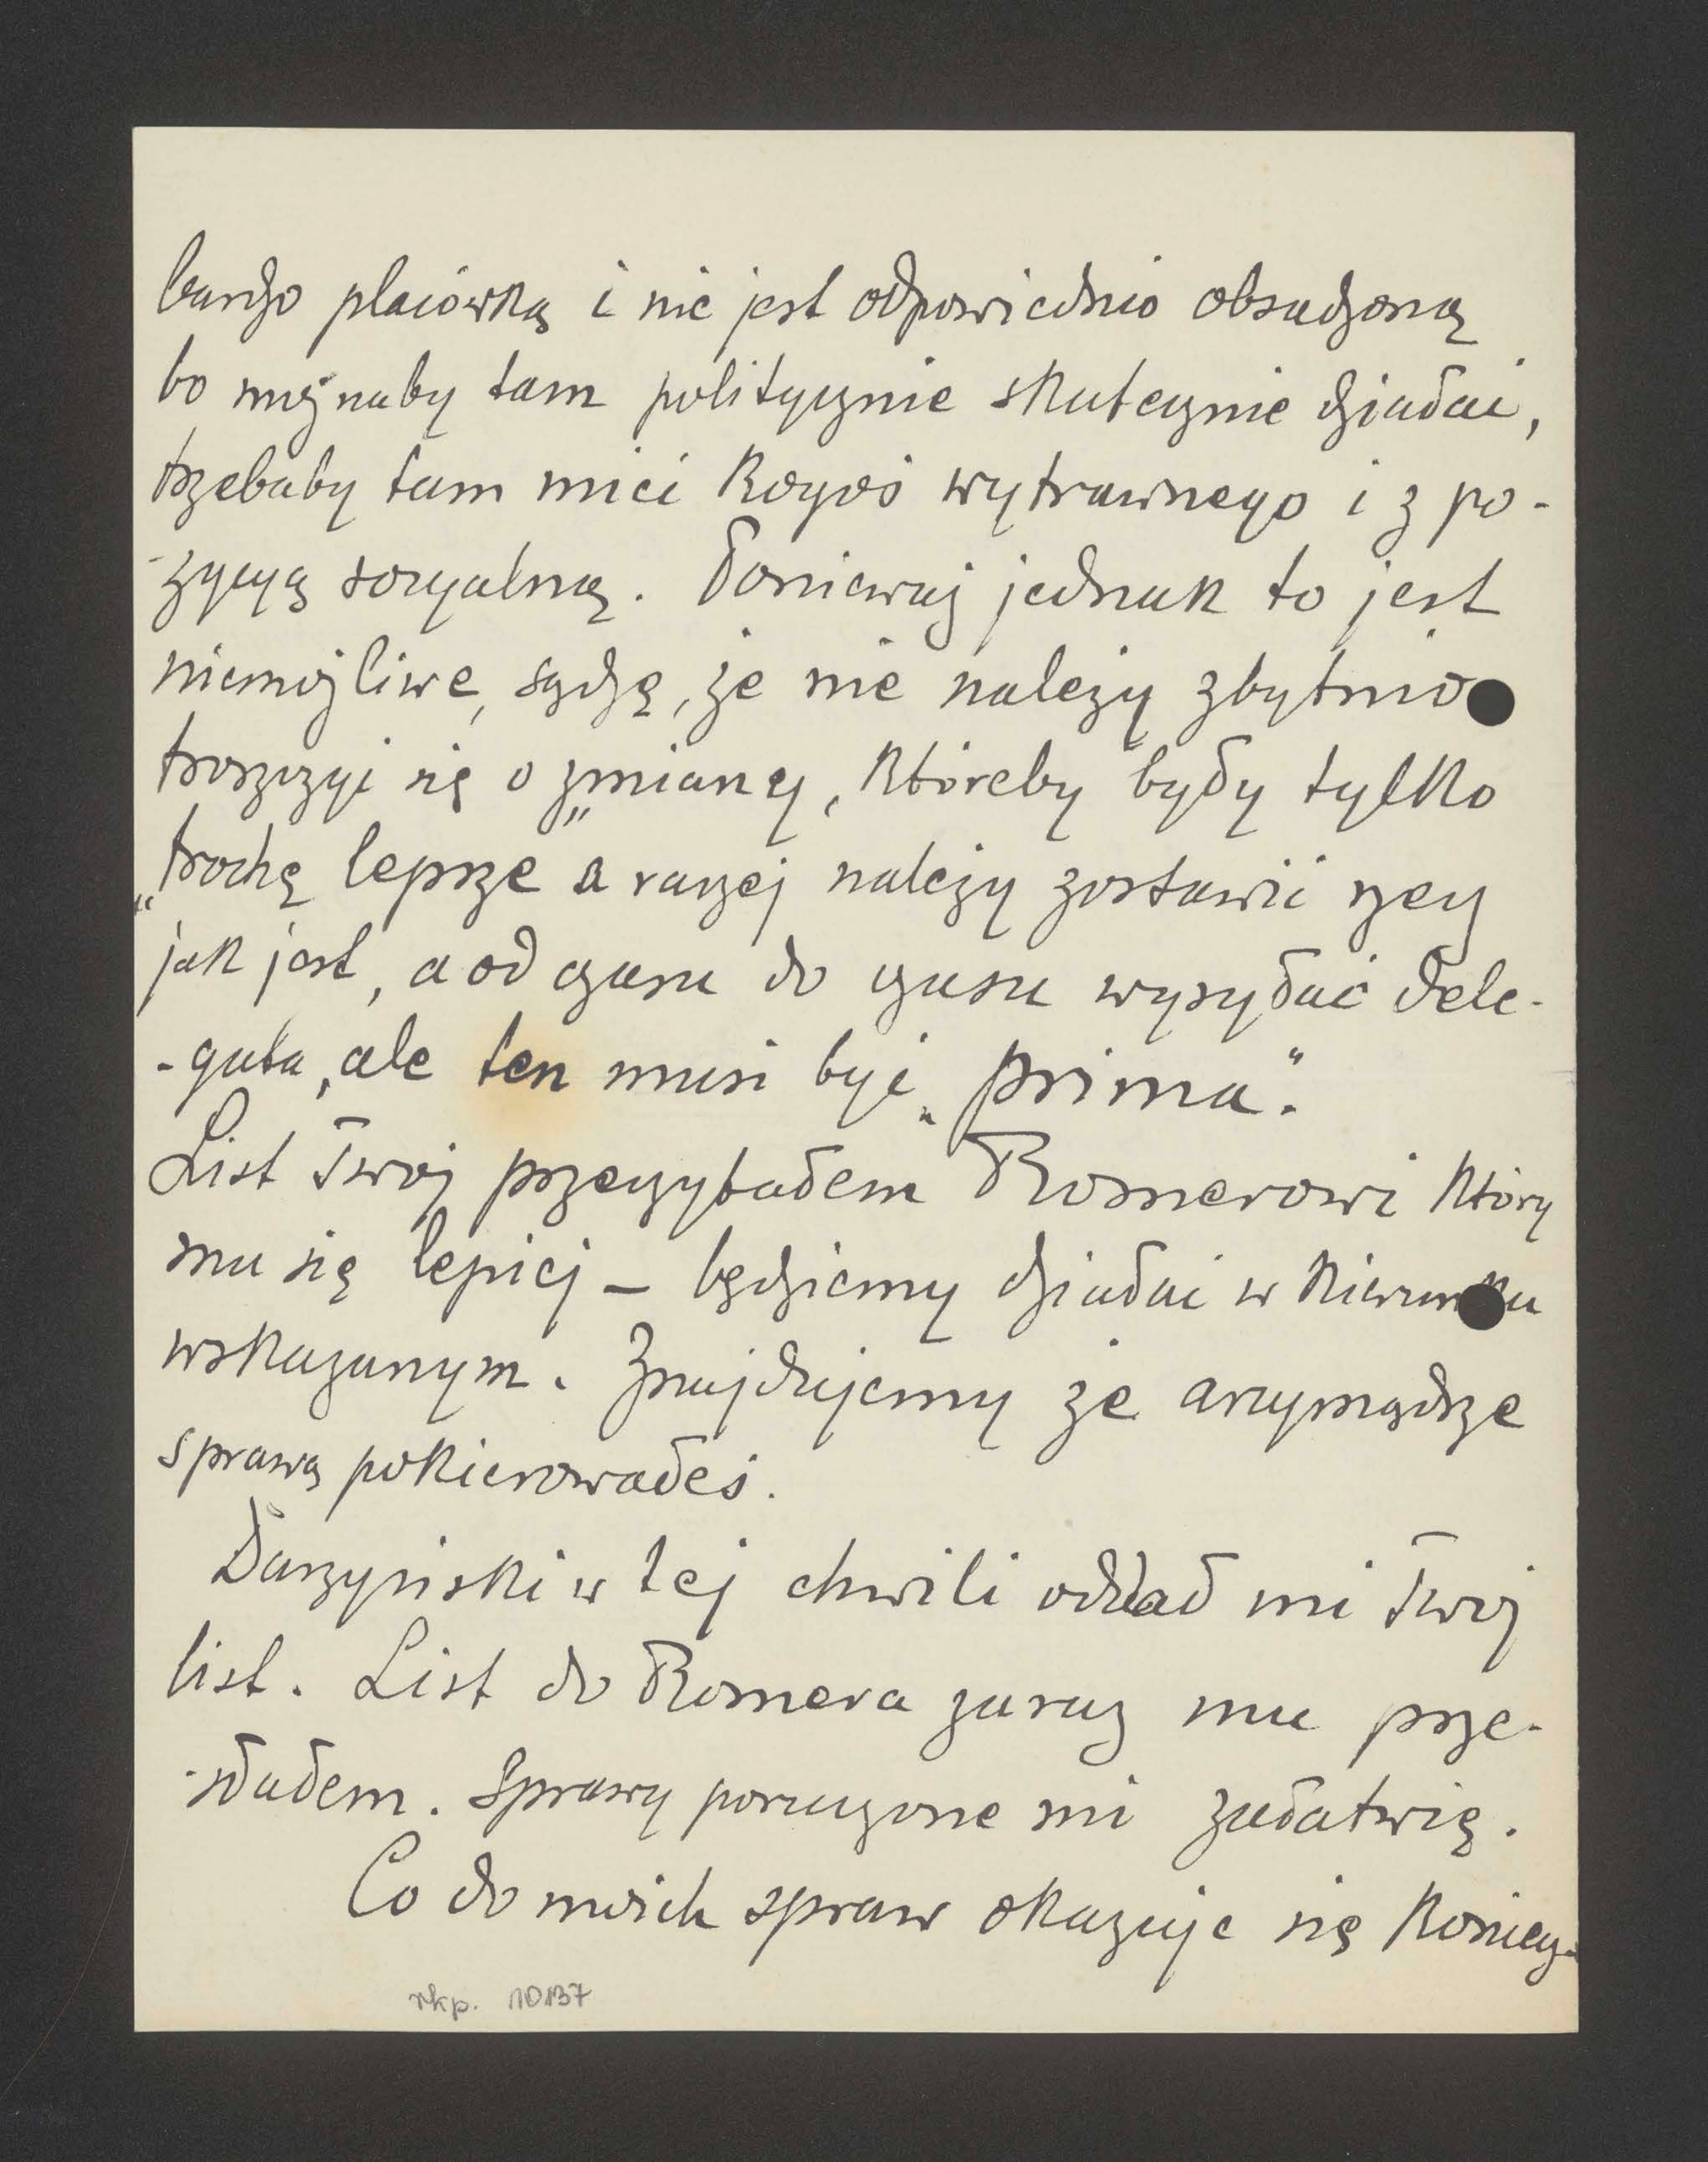 bardzo placówką i nie jest odpowiednio obsadzoną
bo możnaby tam politycznie skutecznie działać,
trzebaby tam mieć kogoś wytrawnego i z po-
-zycyą socyalną. Ponieważ jednak to jest
niemożliwe, sądzę, że nie należy zbytnio
troszczyć się o zmiany, któreby były tylko
„trochę" lepsze a raczej należy zostawić rzecz
jak jest, a od czasu do czasu wysyłać dele-
-gata, ale ten musi być „prima".
List Twój przeczytałem Romerowi który
ma się lepiej – będziemy działać w kierunku
wskazanym. Znajdujemy że arcymądrze
sprawą pokierowałeś.
Daszyński w tej chwili oddał mi Twój
list. List do Romera zaraz mu prze-
-słałem. Sprawy poruczone mi załatwię.
Co do moich spraw okazuje się koniecz-
rkp. 10137